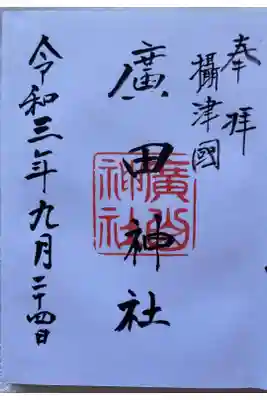 奉拝
攝津國
廣田神社
廣田神社
令和三年九月二十四日